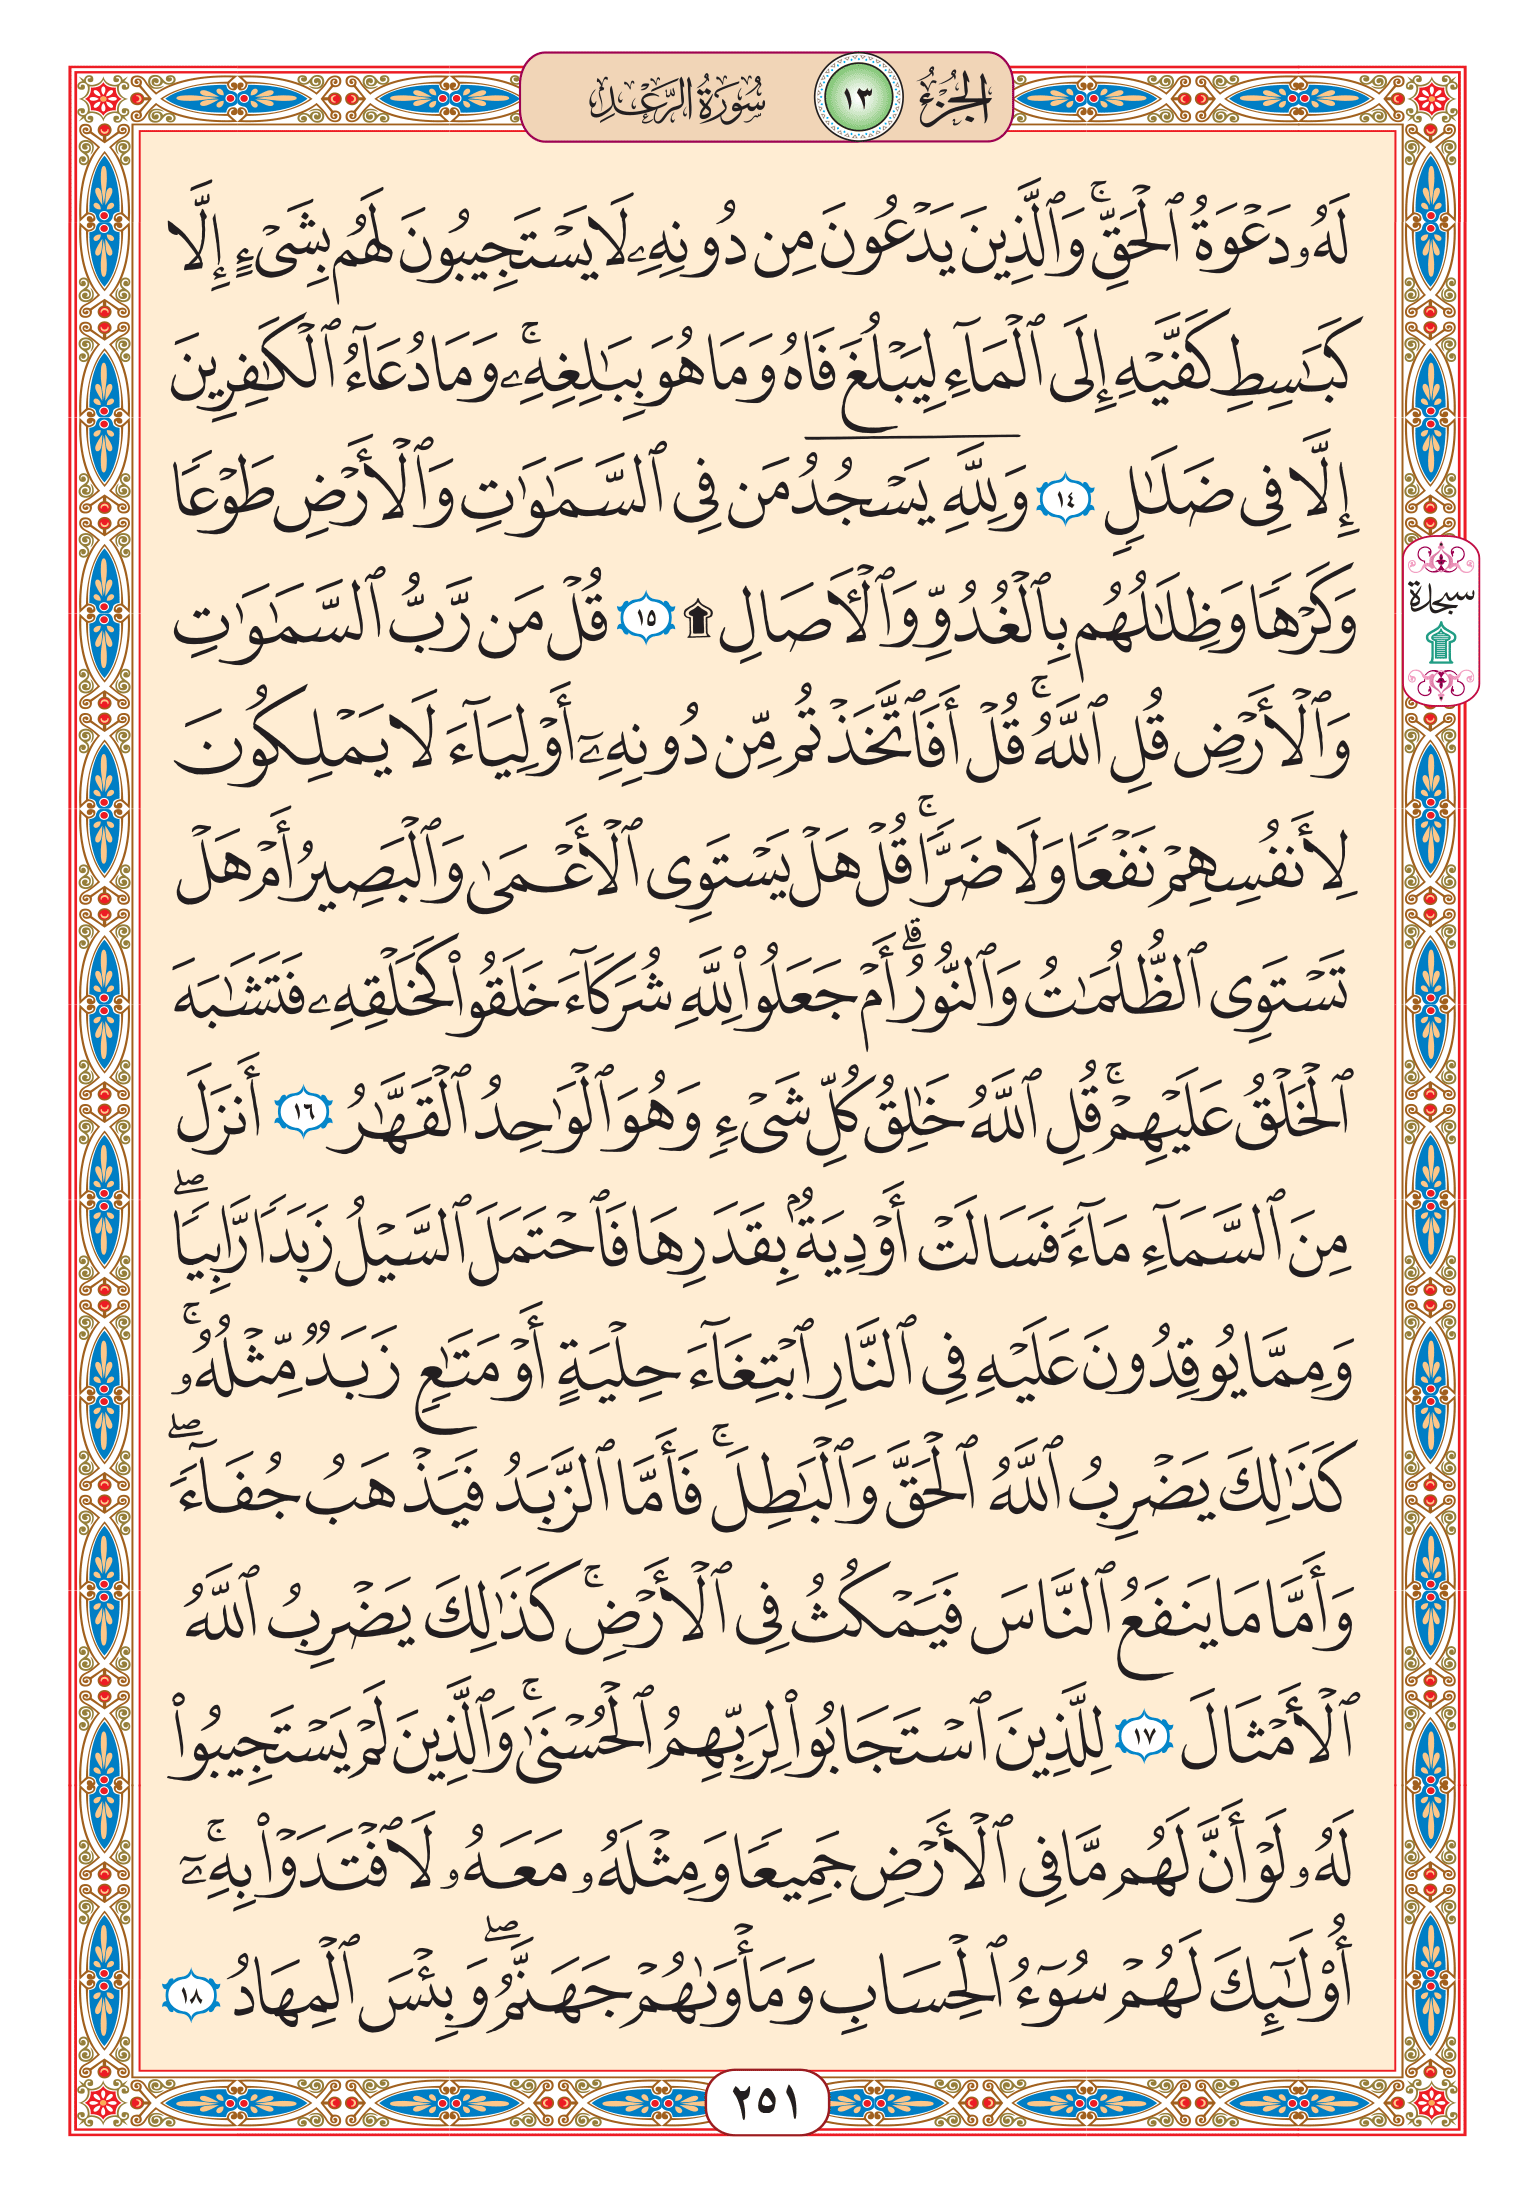 الجُزْءُ ١٣ سُورَةُ الرَّعْدِ
لَهُۥ دَعْوَةُ ٱلْحَقِّ ۚ وَٱلَّذِينَ يَدْعُونَ مِن دُونِهِۦ لَا يَسْتَجِيبُونَ لَهُم بِشَىْءٍ إِلَّا
كَبَـٰسِطِ كَفَّيْهِ إِلَى ٱلْمَآءِ لِيَبْلُغَ فَاهُ وَمَا هُوَ بِبَـٰلِغِهِۦ ۚ وَمَا دُعَآءُ ٱلْكَـٰفِرِينَ
إِلَّا فِى ضَلَـٰلٍ ١٤ وَلِلَّهِ يَسْجُدُ مَن فِى ٱلسَّمَـٰوَٰتِ وَٱلْأَرْضِ طَوْعًا
وَكَرْهًا وَظِلَـٰلُهُم بِٱلْغُدُوِّ وَٱلْـَٔاصَالِ ۩ ١٥ قُلْ مَن رَّبُّ ٱلسَّمَـٰوَٰتِ
سجدة
وَٱلْأَرْضِ قُلِ ٱللَّهُ ۚ قُلْ أَفَٱتَّخَذْتُم مِّن دُونِهِۦٓ أَوْلِيَآءَ لَا يَمْلِكُونَ
لِأَنفُسِهِمْ نَفْعًا وَلَا ضَرًّا ۚ قُلْ هَلْ يَسْتَوِى ٱلْأَعْمَىٰ وَٱلْبَصِيرُ أَمْ هَلْ
تَسْتَوِى ٱلظُّلُمَـٰتُ وَٱلنُّورُ ۗ أَمْ جَعَلُوا۟ لِلَّهِ شُرَكَآءَ خَلَقُوا۟ كَخَلْقِهِۦ فَتَشَـٰبَهَ
ٱلْخَلْقُ عَلَيْهِمْ ۚ قُلِ ٱللَّهُ خَـٰلِقُ كُلِّ شَىْءٍ وَهُوَ ٱلْوَٰحِدُ ٱلْقَهَّـٰرُ ١٦ أَنزَلَ
مِنَ ٱلسَّمَآءِ مَآءً فَسَالَتْ أَوْدِيَةٌۢ بِقَدَرِهَا فَٱحْتَمَلَ ٱلسَّيْلُ زَبَدًا رَّابِيًا ۖ
وَمِمَّا يُوقِدُونَ عَلَيْهِ فِى ٱلنَّارِ ٱبْتِغَآءَ حِلْيَةٍ أَوْ مَتَـٰعٍ زَبَدٌ مِّثْلُهُۥ ۚ
كَذَٰلِكَ يَضْرِبُ ٱللَّهُ ٱلْحَقَّ وَٱلْبَـٰطِلَ ۚ فَأَمَّا ٱلزَّبَدُ فَيَذْهَبُ جُفَآءً ۖ
وَأَمَّا مَا يَنفَعُ ٱلنَّاسَ فَيَمْكُثُ فِى ٱلْأَرْضِ ۚ كَذَٰلِكَ يَضْرِبُ ٱللَّهُ
ٱلْأَمْثَالَ ١٧ لِلَّذِينَ ٱسْتَجَابُوا۟ لِرَبِّهِمُ ٱلْحُسْنَىٰ ۚ وَٱلَّذِينَ لَمْ يَسْتَجِيبُوا۟
لَهُۥ لَوْ أَنَّ لَهُم مَّا فِى ٱلْأَرْضِ جَمِيعًا وَمِثْلَهُۥ مَعَهُۥ لَٱفْتَدَوْا۟ بِهِۦٓ ۚ
أُو۟لَـٰٓئِكَ لَهُمْ سُوٓءُ ٱلْحِسَابِ وَمَأْوَىٰهُمْ جَهَنَّمُ ۖ وَبِئْسَ ٱلْمِهَادُ ١٨
٢٥١